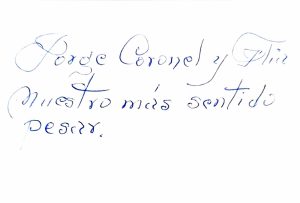 Jorge Coronel y Flia
nuestro más sentido
pesar.